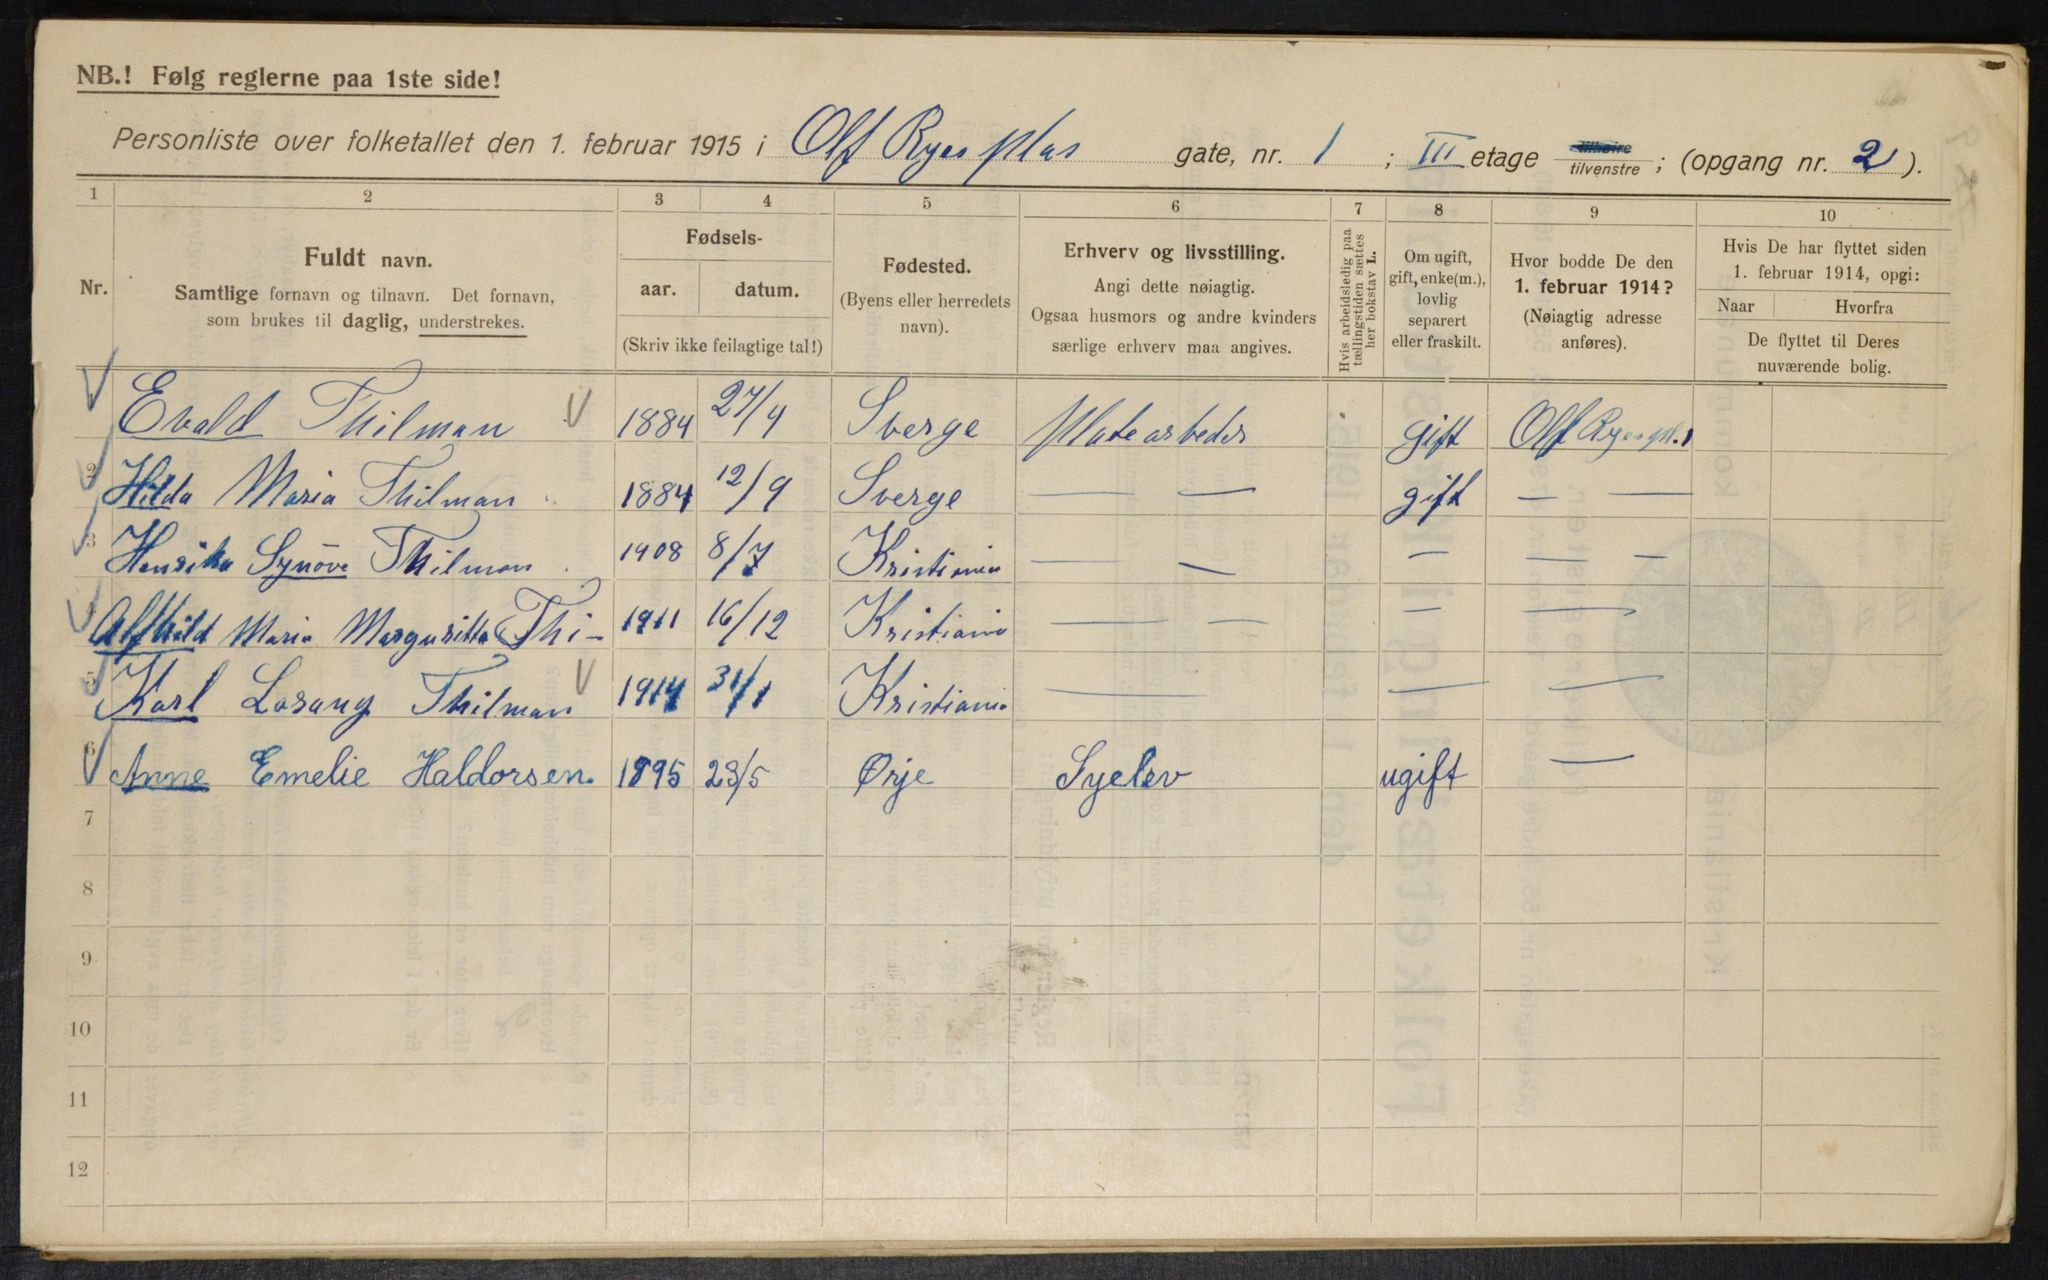 NB.! Følg reglerne paa 1ste side!
Personliste over folketallet den 1. februar 1915 i Olf Ryes plas gate, nr. 1 ; III etage tilhøire tilvenstre ; (opgang nr. 2 ).
1 2 3 4 5 6 7 8 9 10
Nr.
Fuldt navn.
Samtlige fornavn og tilnavn. Det fornavn,
som brukes til daglig, understrekes.
Fødsels-
aar. datum.
(Skriv ikke feilagtige tal!)
Fødested.
(Byens eller herredets
navn).
Erhverv og livsstilling.
Angi dette nøiagtig.
Ogsaa husmors og andre kvinders
særlige erhverv maa angives.
Hvis arbeidsledig paa
tællingstiden sættes
her bokstav L.
Om ugift,
gift, enke(m.),
lovlig
separert
eller fraskilt.
Hvor bodde De den
1. februar 1914?
(Nøiagtig adresse
anføres).
Hvis De har flyttet siden
1. februar 1914, opgi:
Naar Hvorfra
De flyttet til Deres
nuværende bolig.
Evald Thilman 1884 27/9 Sverge Platearbeder gift Olf Ryespl. 1
2 Hilda Maria Thilman 1884 12/9 Sverge — — gift — —
3 Henrika Synöve Thilman 1908 8/7 Kristiania — — — — —
4 Alfhild Maria Margusitta Thi- 1911 16/12 Kristiania — — — —
5 Karl Lorang Thilman 1914 31/1 Kristiania — — —
6 Anne Emelie Haldorsen. 1895 23/5 Ørje Syelev ugift —
7
8
9
10
11
12